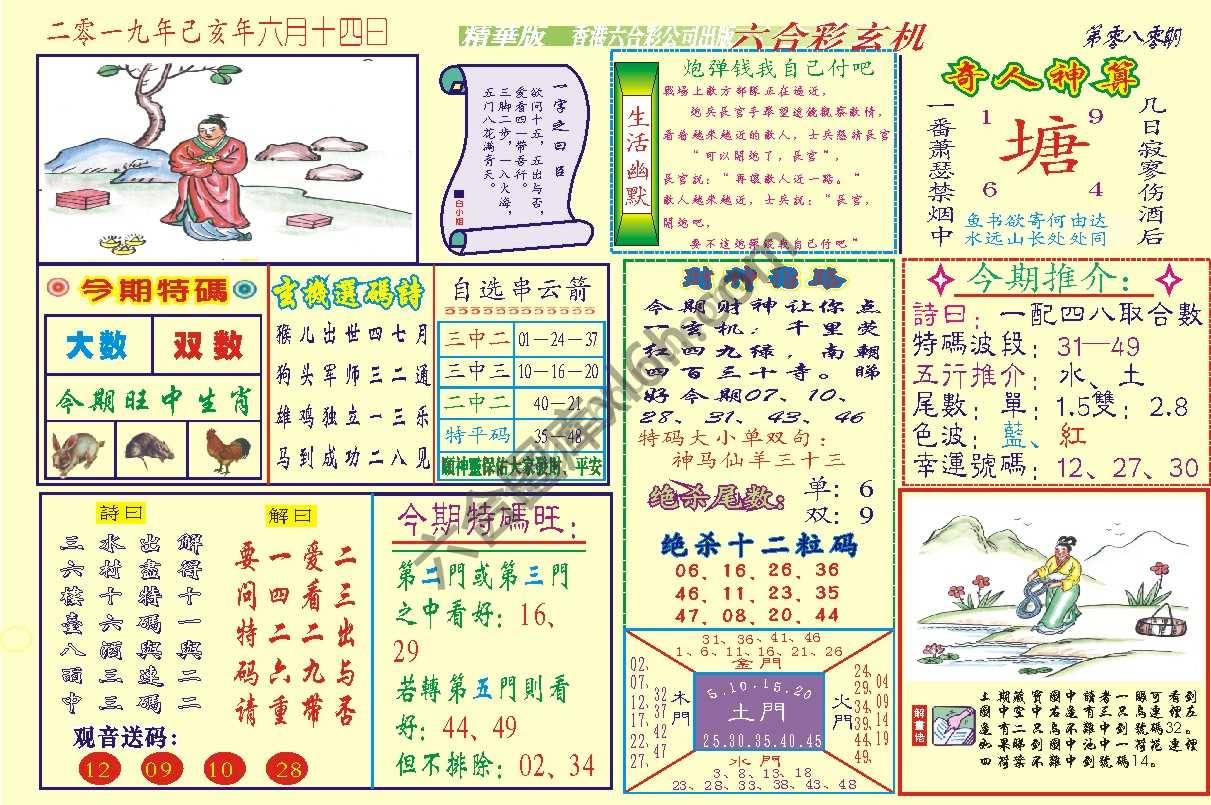 二零一九年己亥年六月十四日
精華版 香港六合彩公司出版 六合彩玄机
第零八零期
一字之曰 臣
欲问十五，五出与否，
爱看四一带吾行。
三脚二步，一入火海，
五门八花满青天。
白小姐
生活幽默
炮弹钱我自己付吧
戰場上敵方部隊正在逼近，
炮兵長官手舉望遠鏡觀察敵情，
看着越来越近的敵人，士兵懇請長官
“可以開炮了，長官”，
長官説：“再讓敵人近一路。”
敵人越来越近，士兵説：“長官，
開炮吧，
要不這炮彈錢我自己付吧”
奇人神算
几日寂寥伤酒后
一番萧瑟禁烟中
1 9
塘
6 4
鱼书欲寄何由达
水远山长处处同
今期特碼
大数 双数
今期旺中生肖
玄機選碼詩
猴儿出世四七月
狗头军师三二通
雄鸡独立一三乐
马到成功二八见
自选串云箭
三中二 01—24—37
三中三 10—16—20
二中二 40—21
特平码 35—48
願神靈保佑大家發財、平安
財神電路
今期财神让你点
一玄机：千里荧
红四九绿，南朝
四百三十寺。睇
好今期07、10、
28、31、43、46
特码大小单双句：
神马仙羊三十三
绝杀尾数：
单：6
双：9
绝杀十二粒码
06、16、26、36
46、11、23、35
47、08、20、44
今期推介：
詩曰：一配四八取合數
特碼波段：31—49
五行推介：水、土
尾數：單：1.5雙：2.8
色波：藍、紅
幸運號碼：12、27、30
詩曰
解得十一與二
出盡特碼與連碼
水村十六酒三三
三六樓臺八面中
解曰
二三出与否
爱看二九带
一四二六重
要问特码请
观音送码：
12 09 10 28
今期特碼旺：
第二門或第三門
之中看好：16、
29
若轉第五門則看
好：44、49
但不排除：02、34
31、36、41、46
1、6、11、16、21、26
金門
02、07、12、17、22、27、
32、37、42、47
木門
5.10.15.20
土門
25.30.35.40.45
火門
24、29、34、39、44、49、
04、09、14、19
水門
3、8、13、18
23、28、33、38、43、48
解畫悟
土期藏寶圖中讀者一眼可看到
圖中空中右邊有三只鳥連徑左
邊有二只鳥不難中到號碼32。
如果睇到圖中池中一荷花連徑
四荷葉不難中到號碼14。